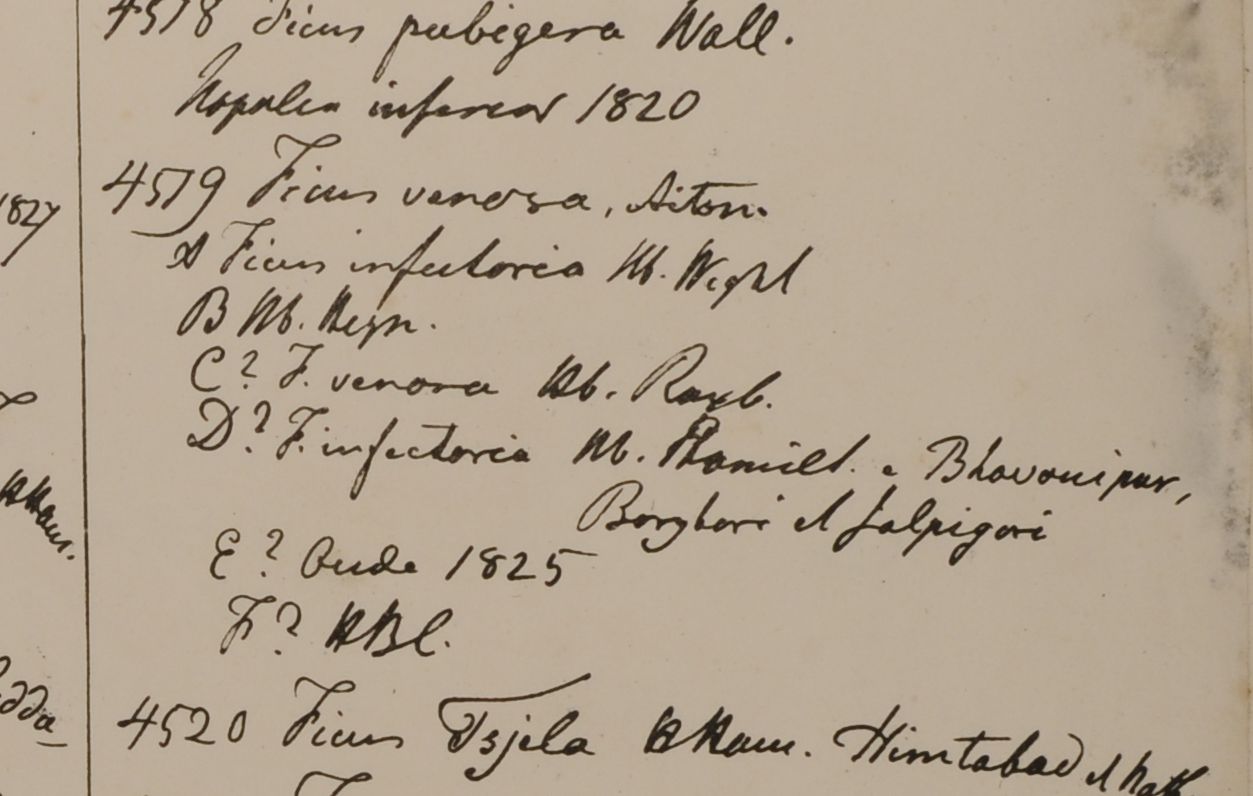 4518 Ficus pubigera Wall.
Napalia inferior 1820
1827
4519 Ficus venosa, Aiton.
A Ficus infectoria Hb. Wight
B Hb. Heyn.
C? F. venosa Hb. Roxb.
D? F. infectoria Hb. Hamilt. e Bhavanipur,
Borghari et Jalpigori
E? Oude 1825
F? HBC.
4520 Ficus Tsjela HHam. Himtabad et